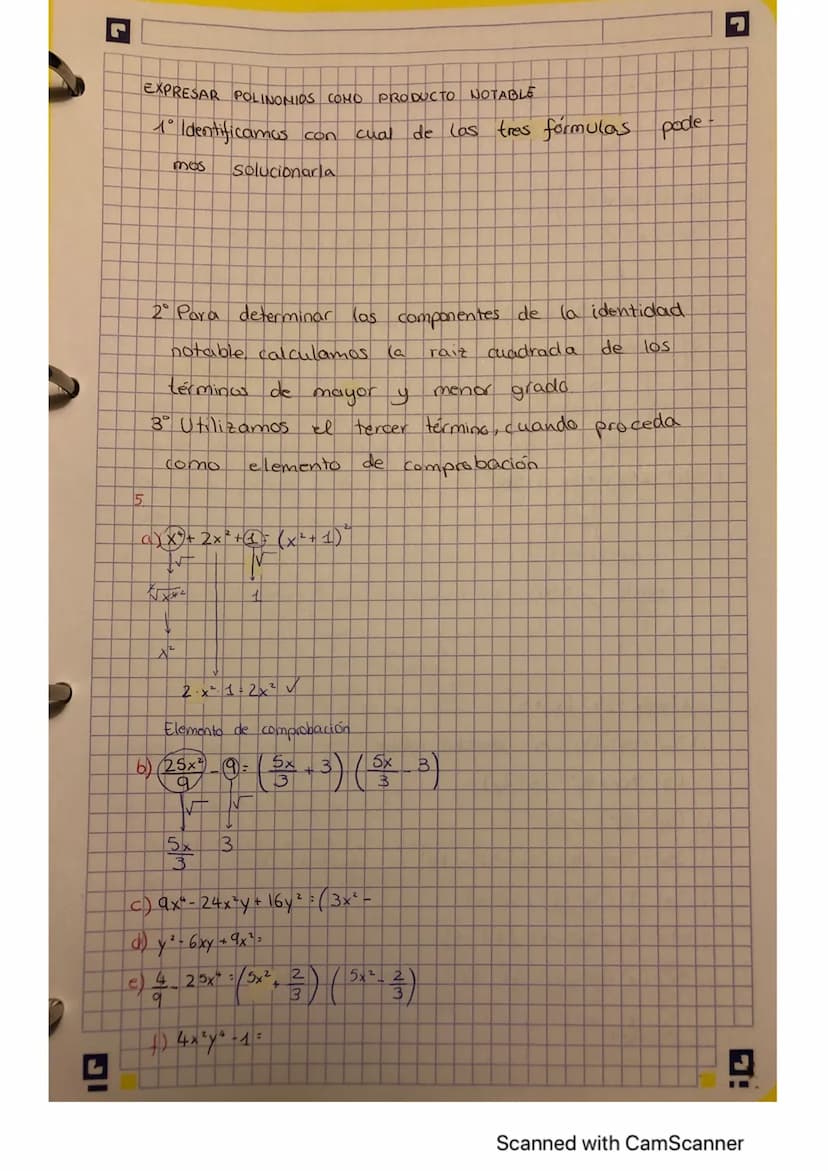 EXPRESAR POLINOMIOS COMO PRODUCTO NOTABLE
1º Identificamos con cual de las tres fórmulas pode-
mos solucionarla
2º Para determinar las componentes de la identidad
notable, calculamos la raiz cuadrada de los
términos de mayor y menor grado
3º Utilizamos el tercer término, cuando proceda
como elemento de comprobación
5.
a) x⁴ + 2x² + 1 = (x² + 1)²
√ √
√x⁴ 1
x²
2·x²·1 = 2x² ✓
Elemento de comprobación
b) 25x²/9 - 9 = (5x/3 + 3) (5x/3 - 3)
√ √
5x/3 3
c) 9x⁴ - 24x²y + 16y² = (3x² -
d) y² - 6xy + 9x² =
e) 4/9 - 25x⁴ = (5x² + 2/3) (5x² - 2/3)
f) 4x²y⁴ - 1 =
Scanned with CamScanner